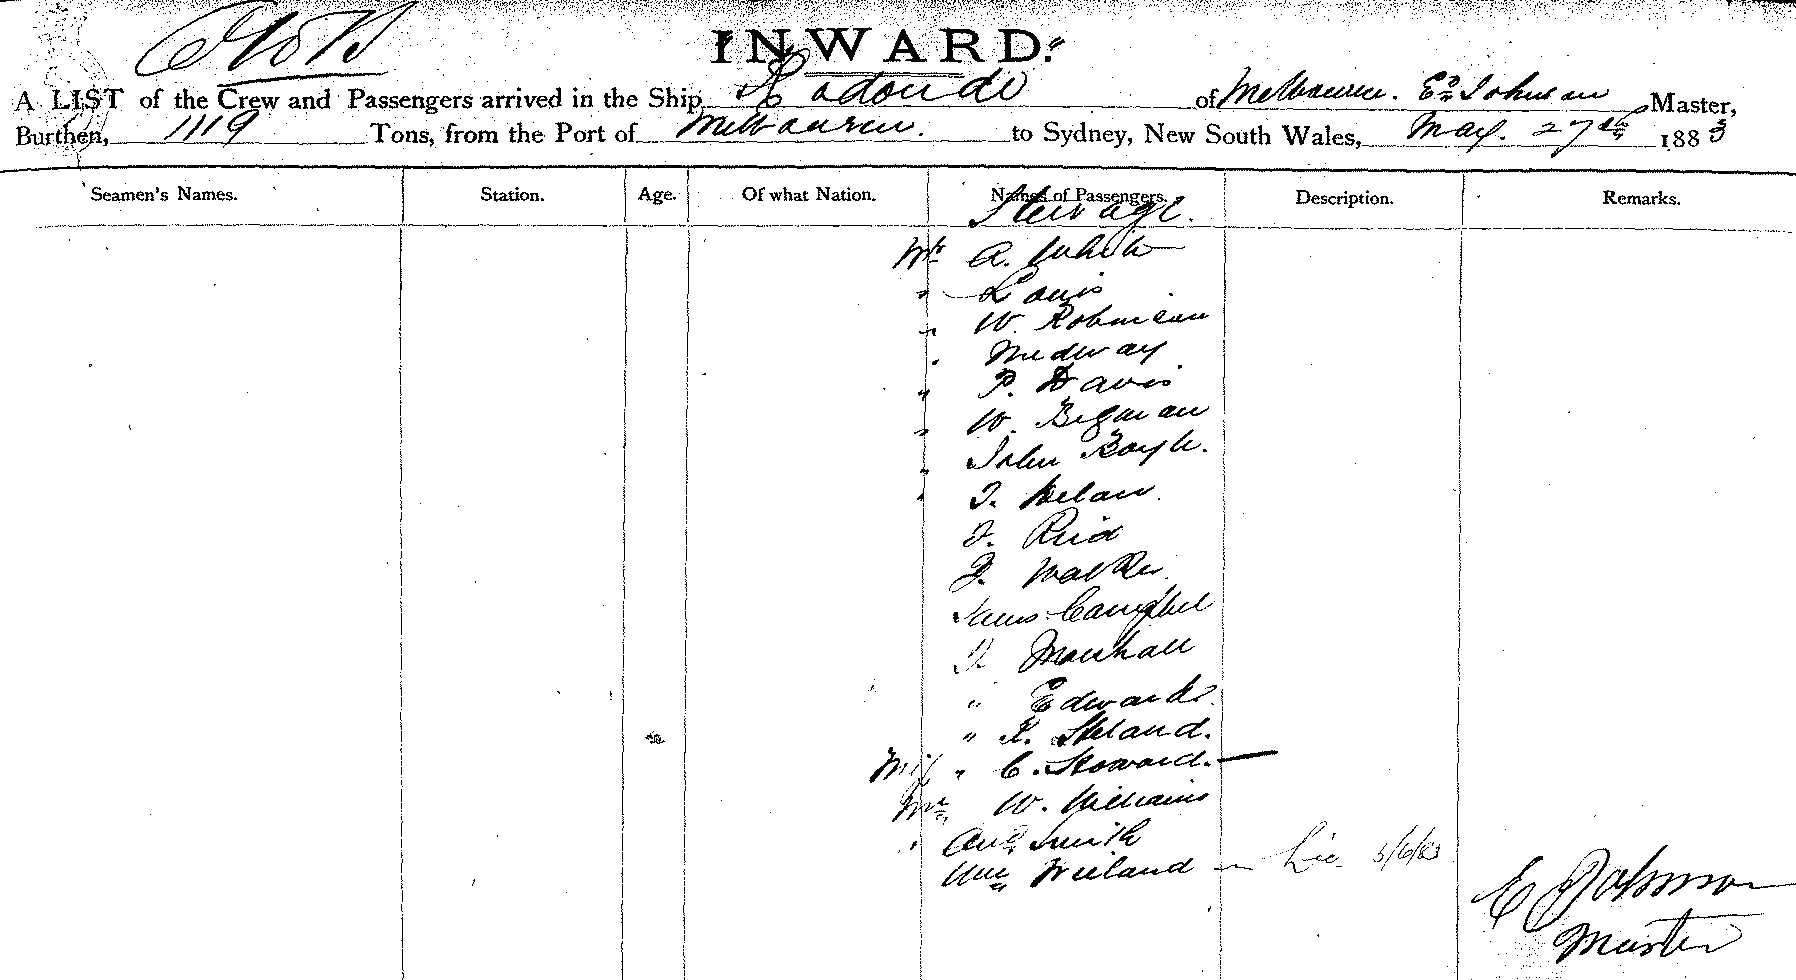 INWARD.
A LIST of the Crew and Passengers arrived in the Ship Rodondo of Melbourne. Edwd Johnson Master,
Burthen, 1119 Tons, from the Port of Melbourne. to Sydney, New South Wales, May. 27th 1883
Seamen's Names. Station. Age. Of what Nation. Names of Passengers. Description. Remarks.
Steerage.
Mr A. White
" Louis
" W. Robinson
" Medway
" P. Davis
" W.
" John Boyle.
" T.
J. Reid
J. Walker
James Campbel
J. Marshall
" Edwards
"
Miss " C. Howard.
Mr W. Williams
" And. Smith
Wm Wieland 5/6/83
E Johnson
Master